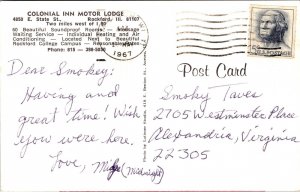 COLONIAL INN MOTOR LODGE
4850 E. State St., Rockford, Ill. 61107
Two miles west of I-90
50 Beautiful Soundproof Rooms
Waiting Service - Individual Heating and Air
Conditioning - Located Next to Beautiful
Rockford College Campus -
Phone: 815
1967
Dear Smokey:
Having and
great time! Wish
you were here.
Love, Midge (Midnight)
Post Card
Smoky Taves
2705 Westminster Place
Alexandria, Virginia
22305